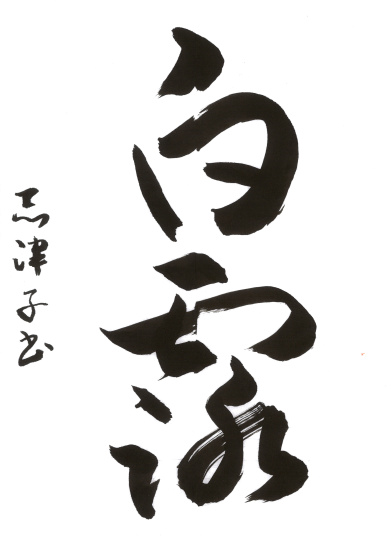 白露
志津子書